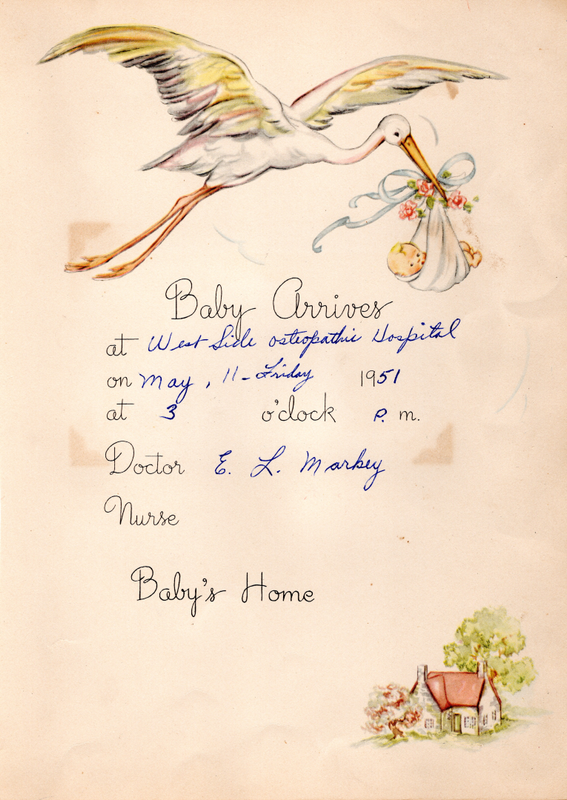 Baby Arrives
at West Side osteopathic Hospital
on May, 11-Friday 1951
at 3 o'clock P. m.
Doctor E. L. Markey
Nurse
Baby's Home